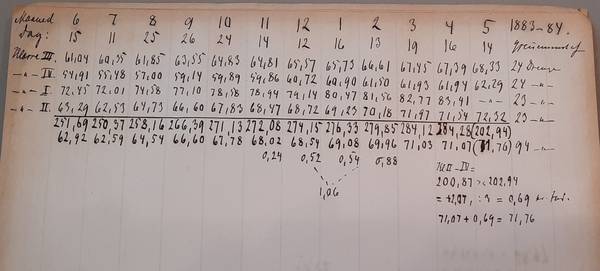 Maaned 6 7 8 9 10 11 12 1 2 3 4 5 1883-84.
Dag: 15 11 25 26 24 14 12 16 13 19 16 14
III. 61,04 60,35 61,85 63,55 64,83 64,81 65,57 65,73 66,61 67,45 67,39 68,33 24 Drenge
-"- IV. 54,91 55,48 57,00 59,14 59,89 59,86 60,72 60,90 61,50 61,93 61,94 62,29 24 -"-
-"- I 72,45 72,01 74,58 77,10 78,58 78,94 79,14 80,47 81,56 82,77 83,41 -"- 23 -"-
-"- II 63,29 62,53 64,73 66,60 67,83 68,47 68,72 69,23 70,18 71,97 71,54 72,32 23 -"-
251,69 250,37 258,16 266,39 271,13 272,08 274,15 276,33 279,85 284,12 284,28 (202,94)
62,92 62,59 64,54 66,60 67,78 68,02 68,54 69,08 69,96 71,03 71,07 (71,76) 94 -"-
0,24 0,52 0,54 0,88
1,06
200,87 202,94
= +2,07, :3 = 0,69
71,07 + 0,69 = 71,76